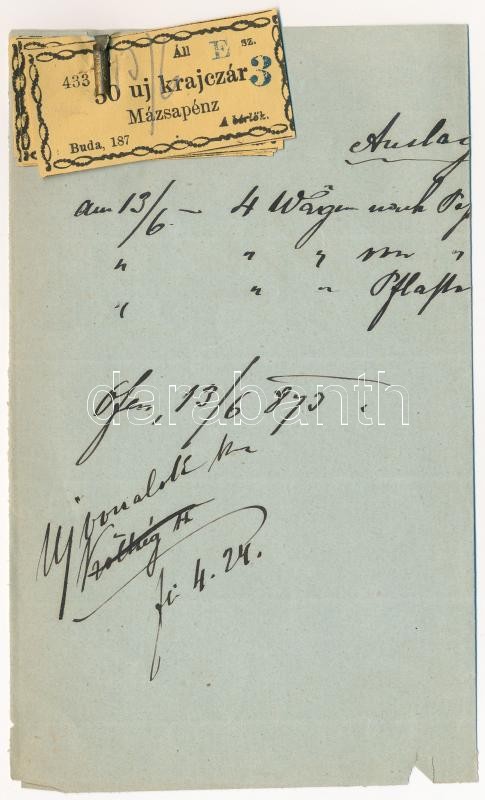 Áll E sz.
433 50 uj krajczár 3
Mázsapénz
Buda, 187
Auslag
am 13/6 — 4 Wägen nach
" " " von "
" " " Pflaste
Ofen, 13/6 873
Ujvonalok
Költség
fi: 4.24.
darabanth